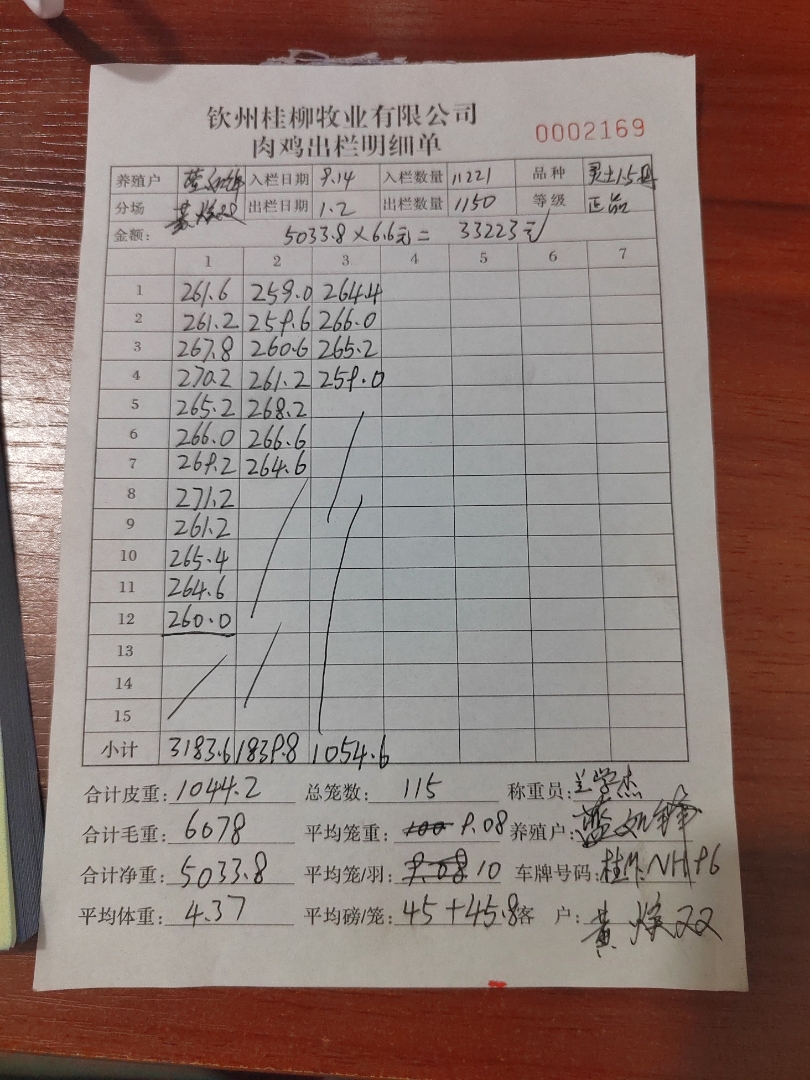 钦州桂柳牧业有限公司
肉鸡出栏明细单 0002169
养殖户 入栏日期 9.14 入栏数量 11221 品种
分场 黄焕双 出栏日期 1.2 出栏数量 1150 等级 正品
金额: 5033.8×6.6元= 33223元
1 2 3 4 5 6 7
1 261.6 259.0 264.4
2 261.2 259.6 266.0
3 267.8 260.6 265.2
4 270.2 261.2 259.0
5 265.2 268.2
6 266.0 266.6
7 269.2 264.6
8 271.2
9 261.2
10 265.4
11 264.6
12 260.0
13
14
15
小计 3183.6 1839.8 1054.6
合计皮重: 1044.2 总笼数: 115 称重员: 兰学杰
合计毛重: 6078 平均笼重: 9.08 养殖户:
合计净重: 5033.8 平均笼/羽: 10 车牌号码:
平均体重: 4.37 平均磅/笼: 45+45.8 客 户: 黄焕双